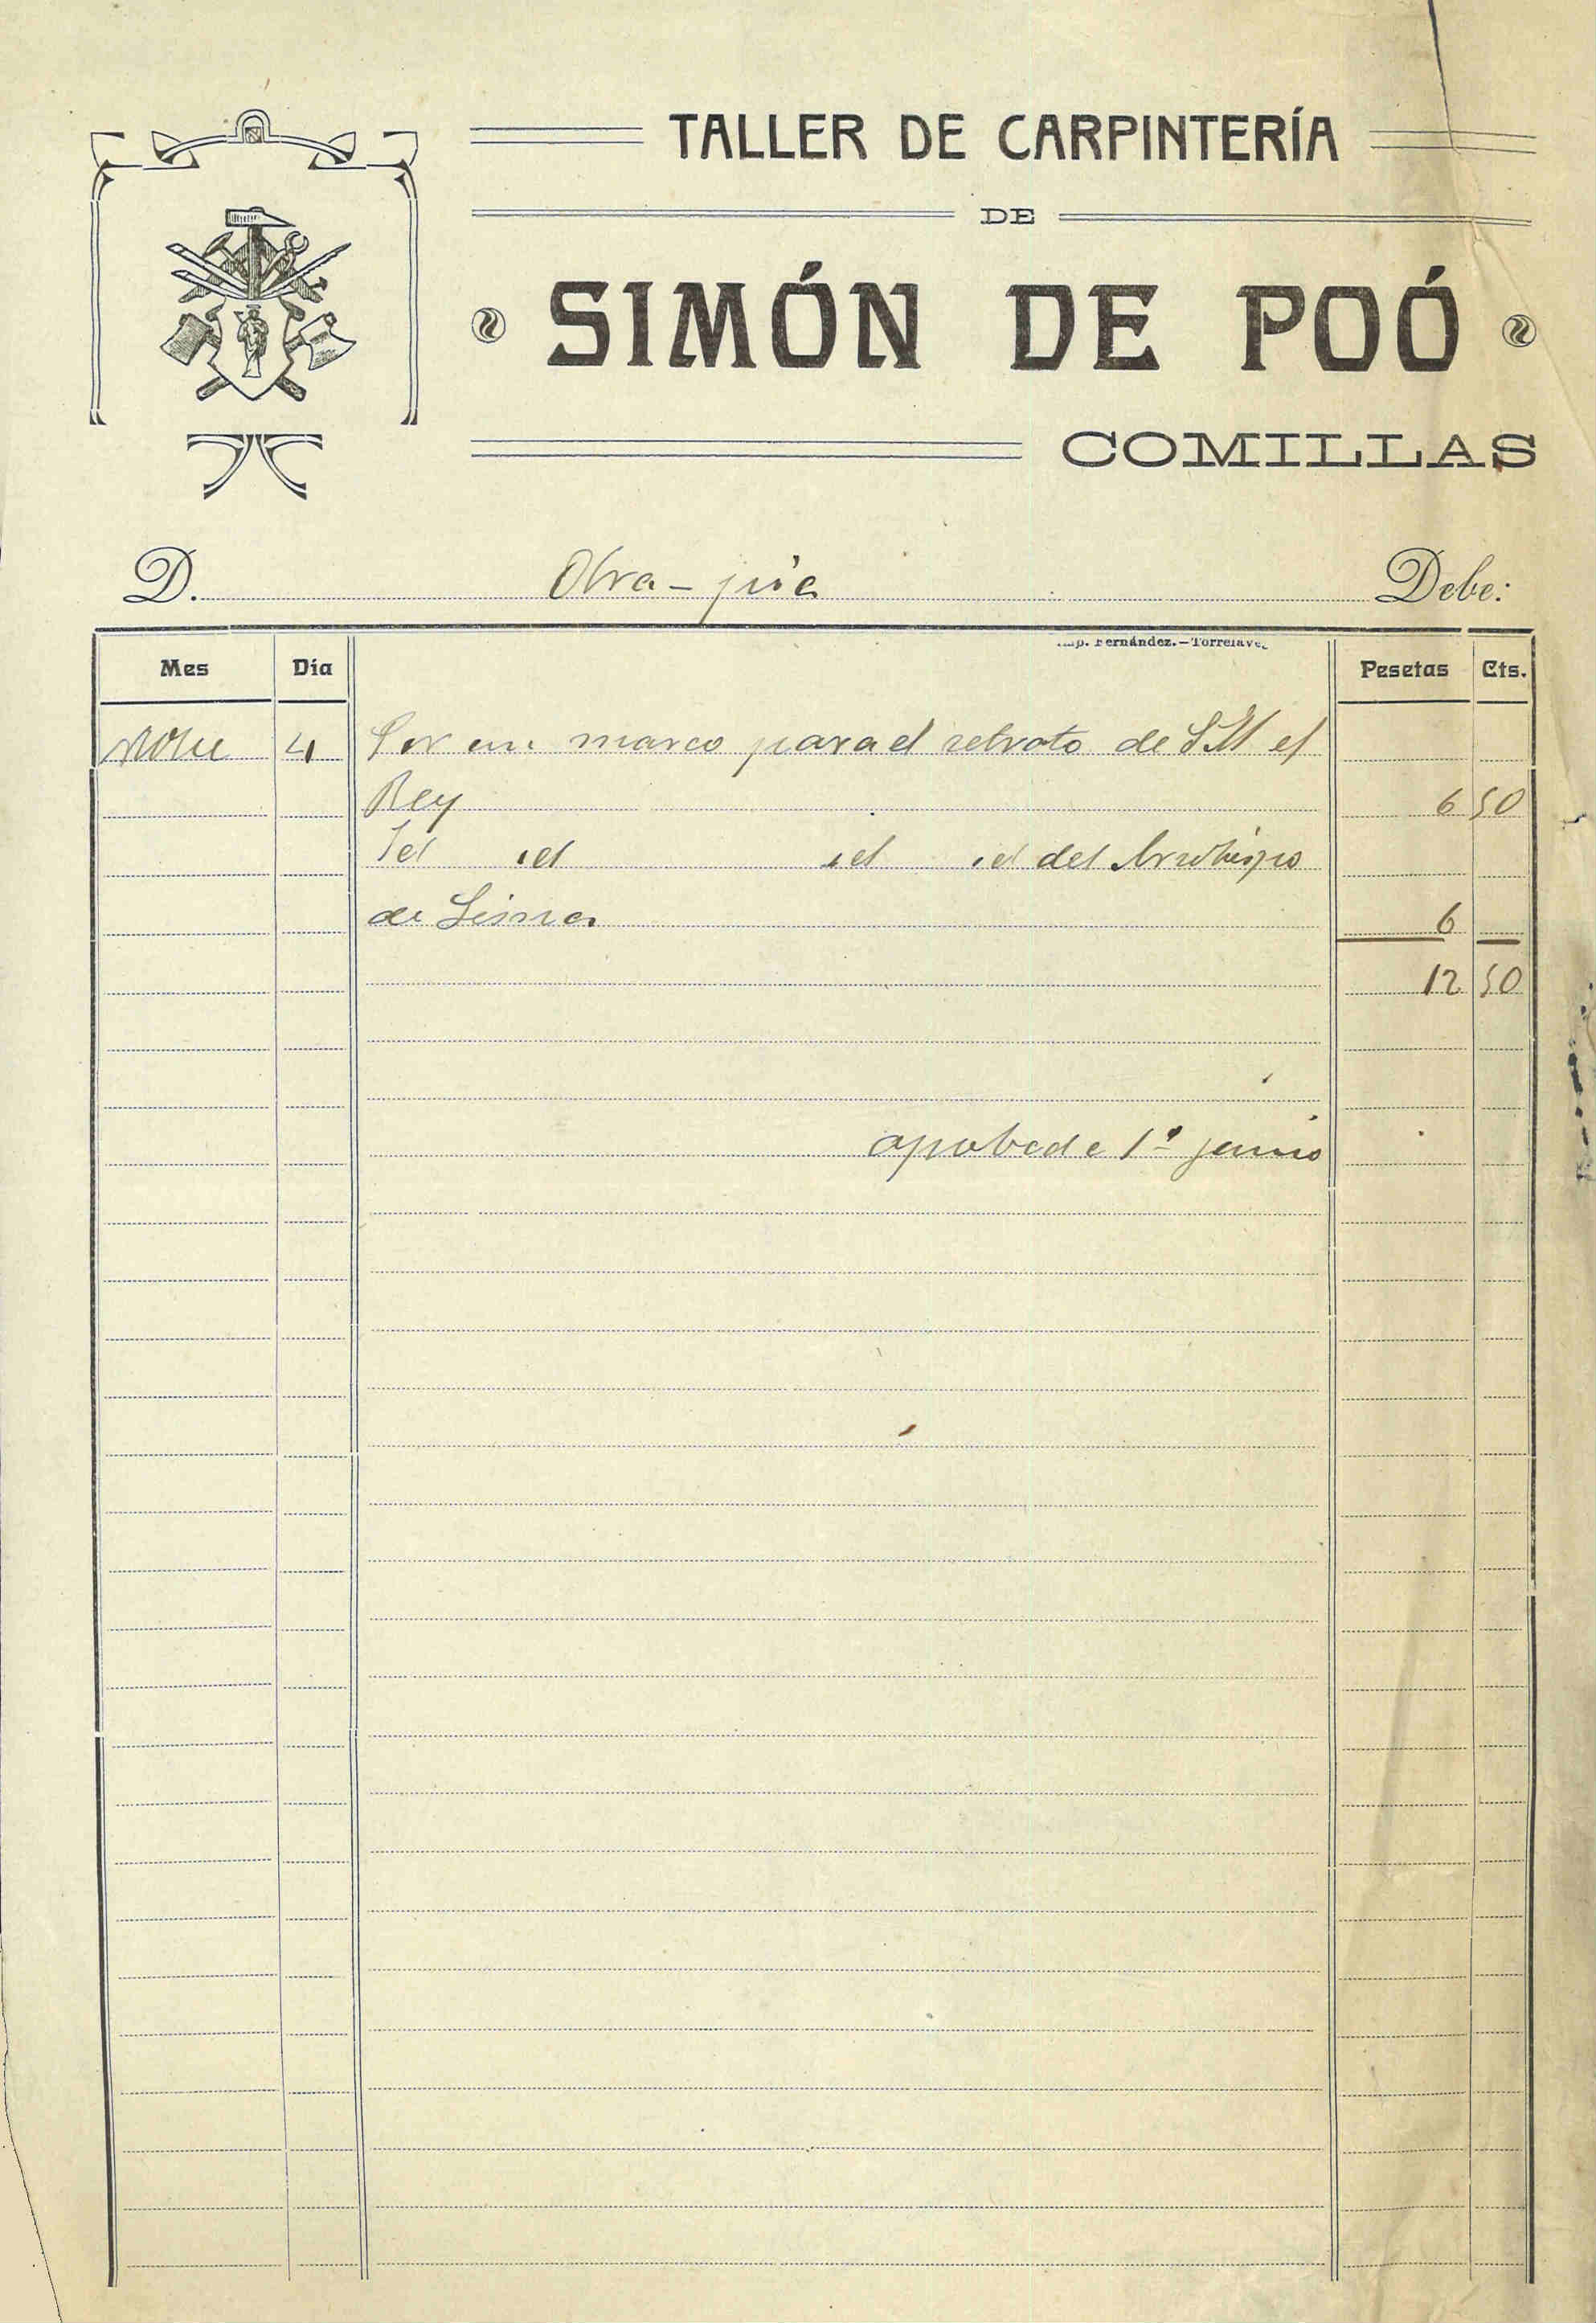 TALLER DE CARPINTERÍA
DE
SIMÓN DE POÓ
COMILLAS
D. Obra-pia Debe:
Imp. Fernández.—Torrelave
Mes Día Pesetas Cts.
4 Por un marco para el retrato de S M el
Rey 6 50
Id id id id del Arzobispo
de Lima 6
12 50
aprobada 1º junio